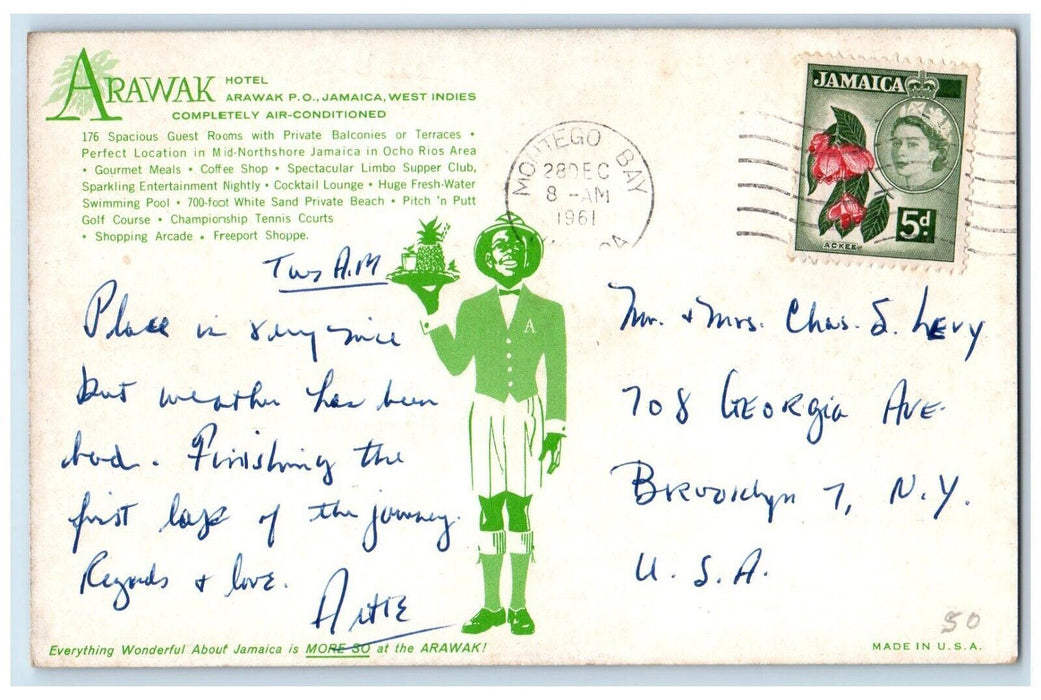 ARAWAK HOTEL
ARAWAK P.O., JAMAICA, WEST INDIES
COMPLETELY AIR-CONDITIONED
176 Spacious Guest Rooms with Private Balconies or Terraces •
Perfect Location in Mid-Northshore Jamaica in Ocho Rios Area
• Gourmet Meals • Coffee Shop • Spectacular Limbo Supper Club,
Sparkling Entertainment Nightly • Cocktail Lounge • Huge Fresh-Water
Swimming Pool • 700-foot White Sand Private Beach • Pitch 'n Putt
Golf Course • Championship Tennis Courts
• Shopping Arcade • Freeport Shoppe.
MONTEGO BAY
28 DEC
8 - AM
1961
JAMAICA
5d
ACKEE
A
Tues A.M
Place is very nice
but weather has been
bad. Finishing the
first lap of the journey.
Regards & love.
Artie
Mr. & Mrs. Chas. S. Levy
708 GEORGia AVE.
Brooklyn 7, N.Y.
U.S.A.
50
Everything Wonderful About Jamaica is MORE SO at the ARAWAK!
MADE IN U.S.A.